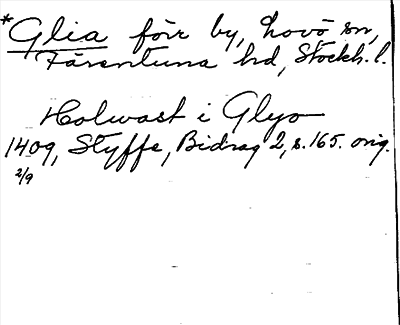 *Glia förr by, Lovö sn,
Färentuna hd, Stockh. l.
Holwast i Glyo
1409, Styffe, Bidrag 2, s. 165. orig.
2/9